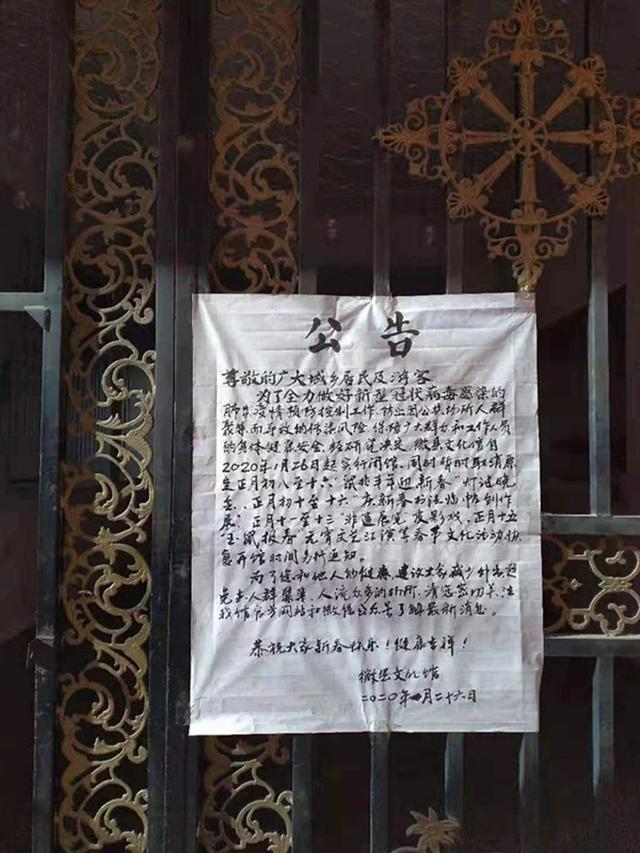 公告
尊敬的广大城乡居民及游客
为了全力做好新型冠状病毒感染的
肺炎疫情预防控制工作,防止因公共场所人群
聚集而导致的传染风险,保障广大群众和工作人员
的身体健康安全,经研究决定,徽县文化馆自
2020年1月26日起实行闭馆。同时暂时取消原
定正月初八至十六"鼠兆丰年迎新春"灯谜晚
会、正月初十至十六"庆新春书法临帖创作
展"正月十一至十三"非遗展览"皮影戏、正月十五
"玉鼠报春"元宵文艺汇演等春节文化活动,恢
复开馆时间另行通知。
为了您和他人的健康,建议大家减少外出,避
免去人群聚集、人流众多的场所,请您密切关注
我馆官方网站和微信公众号了解最新消息。
恭祝大家新春快乐!健康吉祥!
徽县文化馆
二〇二〇年一月二十六日